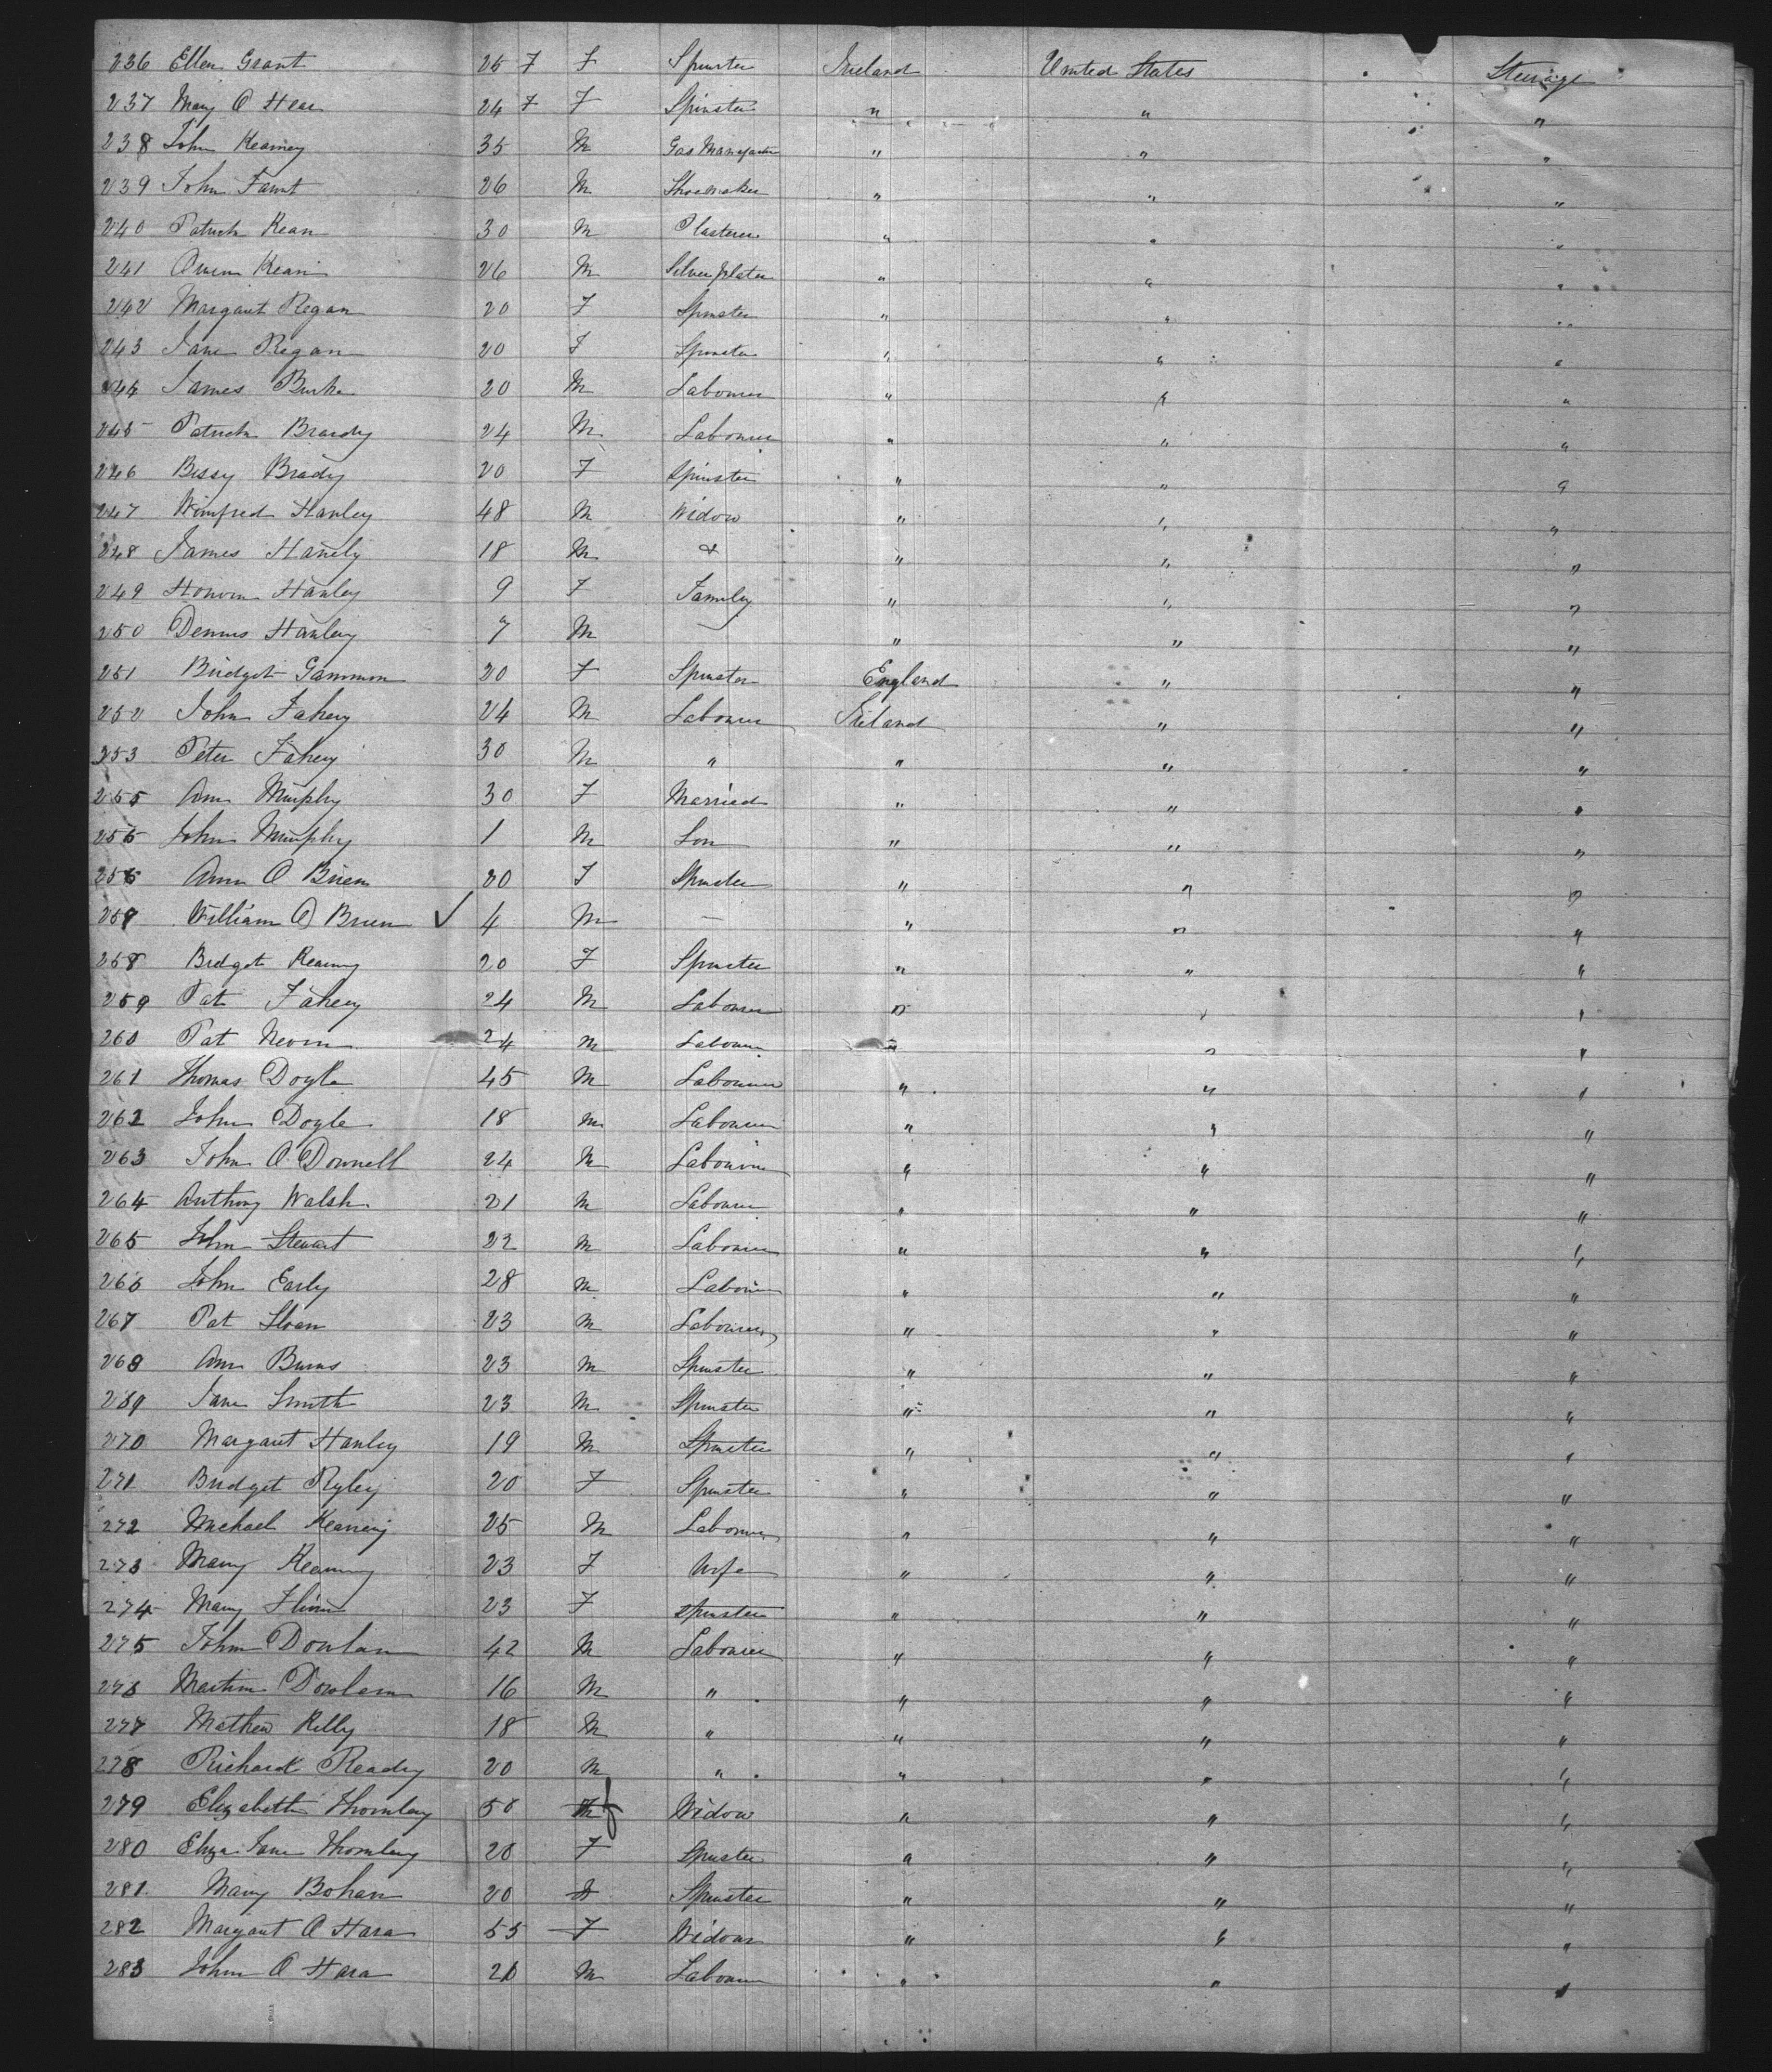 236 Ellen Grant 25 F F Spinster Ireland United States Steerage
237 Mary O 24 F F Spinster " " "
238 John Kearney 35 M Gas " " "
239 John 26 M Shoemaker " " "
240 Patrick Kean 30 M Plasterer " " "
241 Owen Kean 26 M Silver plater " " "
242 Margaret Regan 20 F Spinster " " "
243 Jane Regan 20 F Spinster " " "
244 James Burke 20 M Labourer " " "
245 Patrick Brardy 24 M Labourer " " "
246 Bessy Brady 20 F Spinster " " "
247 Winifred Hanley 48 M Widow " " "
248 James Hanely 18 M & " " "
249 Honora Hanley 9 F Family " " "
250 Dennis Hanley 7 M " " "
251 Bridget Gammon 20 F Spinster England " "
252 John Fahey 24 M Labourer Ireland " "
253 Peter Fahey 30 M " " " "
255 Ann Murphy 30 F Married " " "
255 John Murphy 1 M Son " " "
256 Ann O Brien 20 F Spinster " " "
257 William O Brien ✓ 4 M — " " "
258 Bridget Kearney 20 F Spinster " " "
259 Pat Fahey 24 M Labourer " " "
260 Pat 24 M Labourer " " "
261 Thomas Doyle 45 M Labourer " " "
262 John Doyle 18 M Labourer " " "
263 John O Donnell 24 M Labourer " " "
264 Anthony Walsh 21 M Labourer " " "
265 John Stewart 22 M Labourer " " "
266 John Early 28 M Labourer " " "
267 Pat Sloan 23 M Labourer " " "
268 Ann Burns 23 M Spinster " " "
269 Jane Smith 23 M Spinster " " "
270 Margaret Hanley 19 M Spinster " " "
271 Bridget Ryley 20 F Spinster " " "
272 Michael Kearney 25 M Labourer " " "
273 Mary Kearney 23 F Wife " " "
274 Mary Flinn 23 F Spinster " " "
275 John Dowlan 42 M Labourer " " "
276 Martin Dowlan 16 M " " " "
277 Mathew Kelly 18 M " " " "
278 Richard Ready 20 M " " " "
279 Elizabeth Thornley 50 f Widow " " "
280 Eliza Jane Thornley 20 F Spinster " " "
281 Mary Bohan 20 F Spinster " " "
282 Margaret O Hara 55 F Widow " " "
283 John O Hara 20 M Labourer " " "